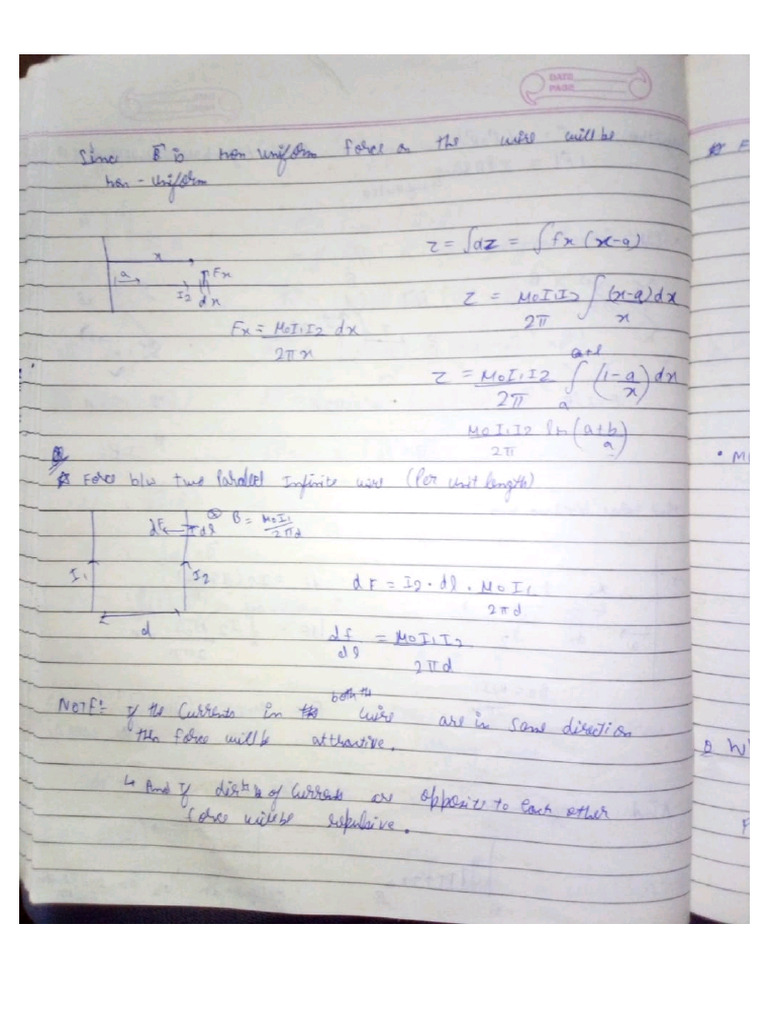 DATE
PAGE
Since B is non uniform force on the wire will be
non-uniform
x
a
Fx
I2
dx
Fx = M0I1I2 dx
2πx
τ = ∫dτ = ∫fx (x-a)
τ = M0I1I2 ∫(x-a)dx
2π x
a+l
τ = M0I1I2 ∫ (1-a)dx
2π a x
M0I1I2 ln(a+b)
2π a
Q
☆ Force b/w two Parallel Infinite wire (Per unit length)
dF dl ⊗ B = M0I1
2πd
I1 I2
d
dF = I2 · dl · M0I1
2πd
df = M0I1I2
dl 2πd
both the
NOTE: If the Currents in wire are in Same direction
then force will be attractive.
↳ And If of Currents are opposite to each other
force will be repulsive.
F
• M
Q W
F